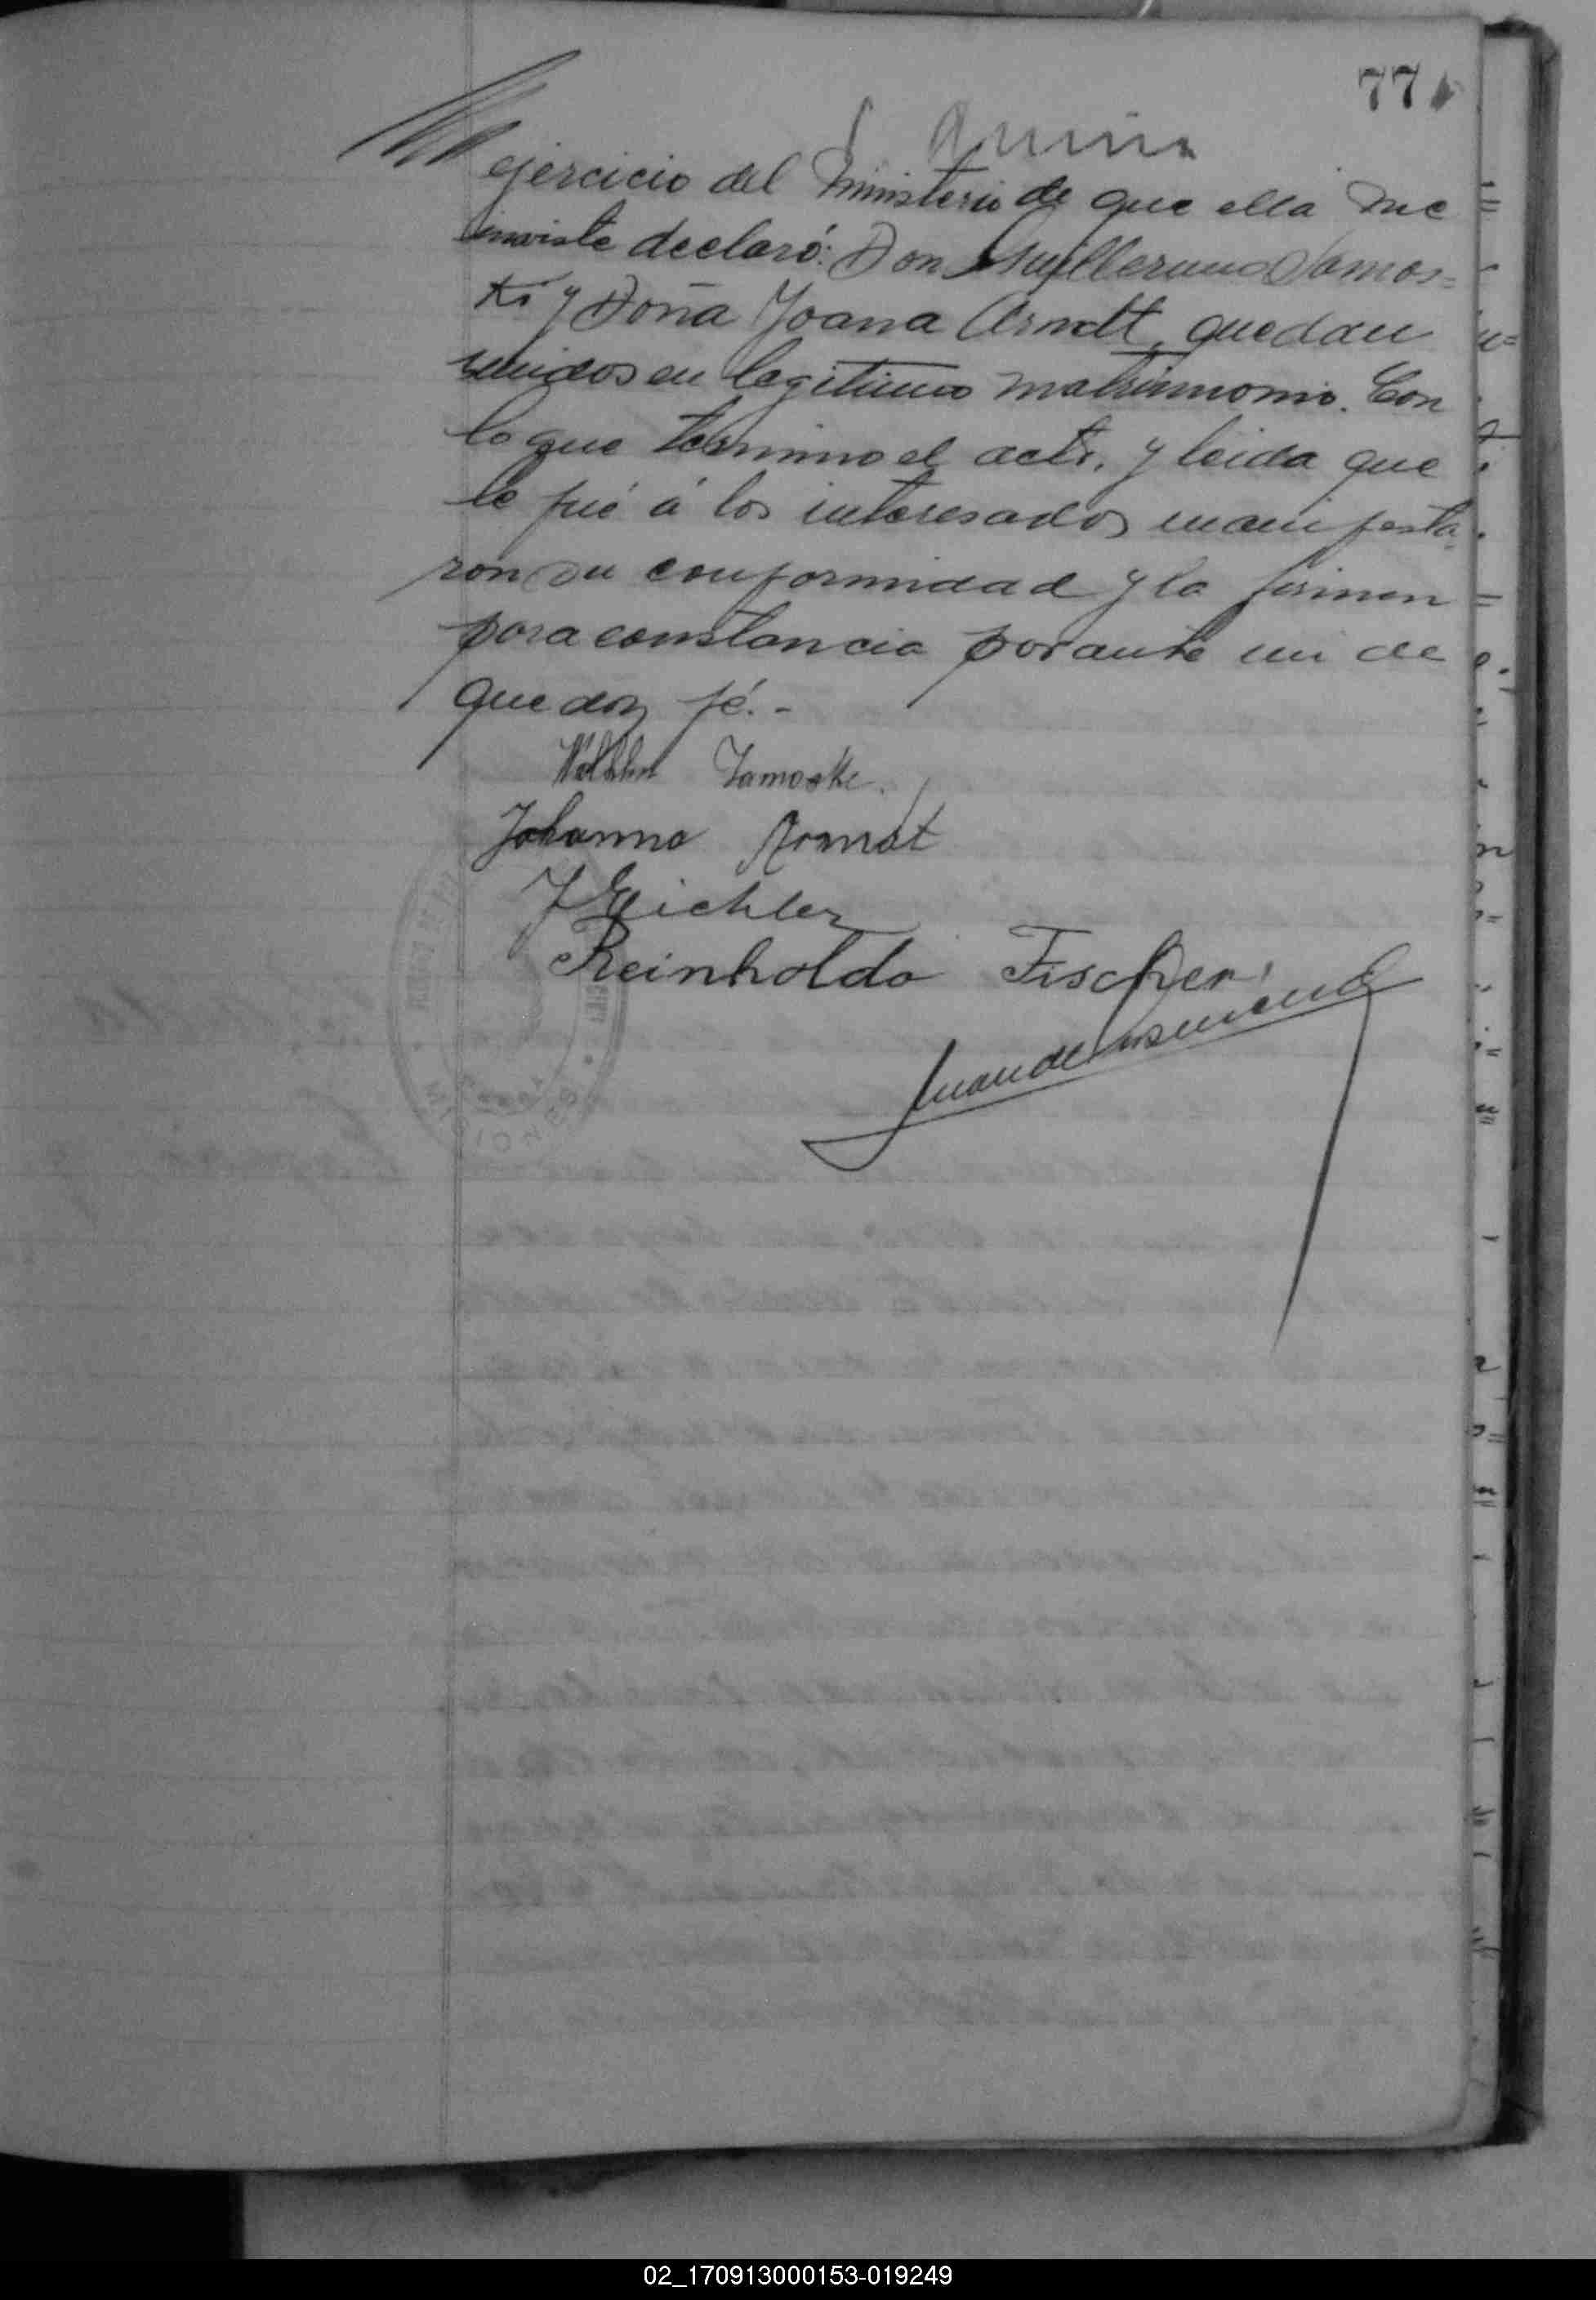 77
ejercicio del Ministerio de que ella me
inviste declaró: Don Guillermo Samos=
ki y Doña Joana Arndt, quedan
unidos en legitimo matrimonio. Con
lo que termino el acto, y leida que
le fué á los interesados manifesta
ron su conformidad y la firman
para constancia por ante mi de
que doy fé.-
Zamoske.
Johanna Arndt
J Eichler
Reinholdo Fischer
Juan de
02_170913000153-019249